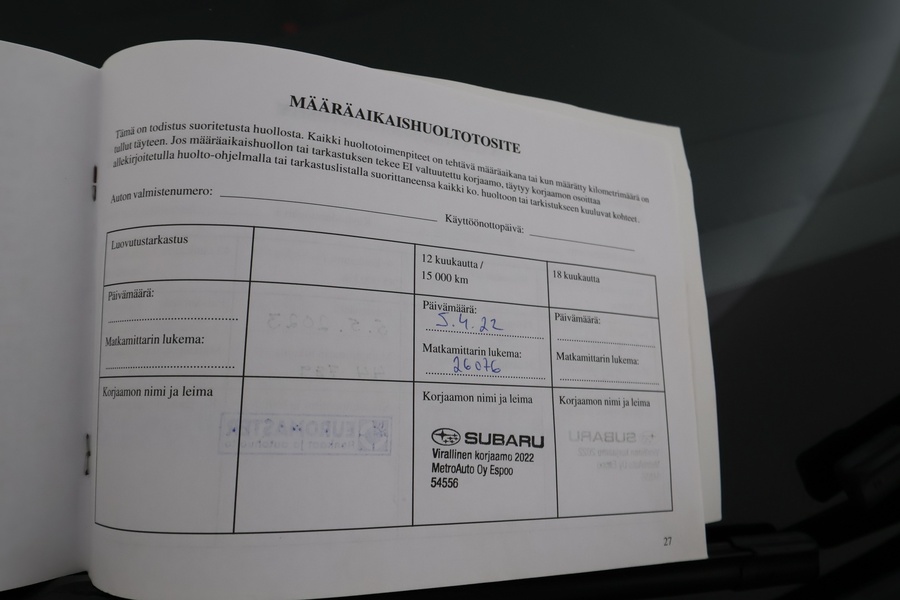 MÄÄRÄAIKAISHUOLTOTOSITE
Tämä on todistus suoritetusta huollosta. Kaikki huoltotoimenpiteet on tehtävä määräaikana tai kun määrätty kilometrimäärä on
tullut täyteen. Jos määräaikaishuollon tai tarkastuksen tekee EI valtuutettu korjaamo, täytyy korjaamon osoittaa
allekirjoitetulla huolto-ohjelmalla tai tarkastuslistalla suorittaneensa kaikki ko. huoltoon tai tarkistukseen kuuluvat kohteet.
Auton valmistenumero:
Käyttöönottopäivä:
Luovutustarkastus
12 kuukautta /
15 000 km
18 kuukautta
Päivämäärä:
Päivämäärä:
5.4.22
Päivämäärä:
Matkamittarin lukema:
Matkamittarin lukema:
26076
Matkamittarin lukema:
Korjaamon nimi ja leima
Korjaamon nimi ja leima
Korjaamon nimi ja leima
SUBARU
Virallinen korjaamo 2022
MetroAuto Oy Espoo
54556
27